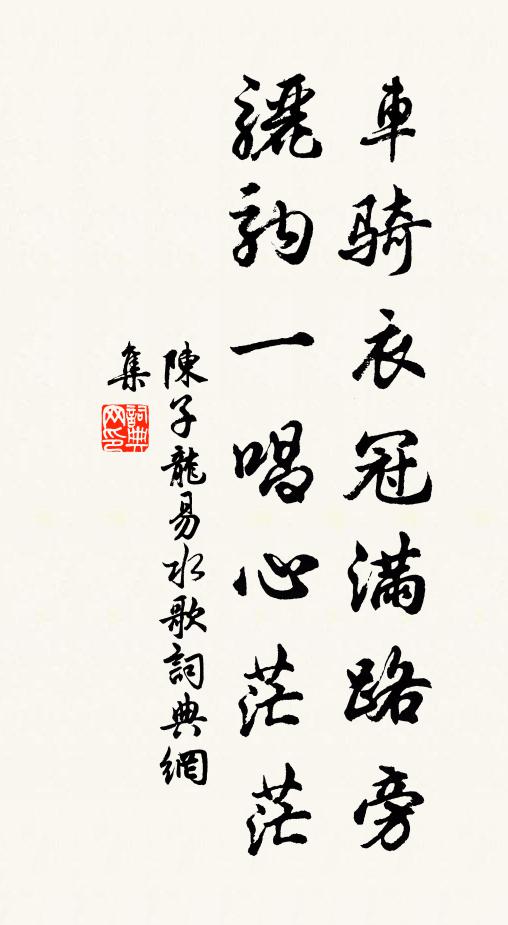 車騎衣冠滿路旁
驪駒一唱心茫茫
陳子龍易水歌詞典網
集
詞典
网印